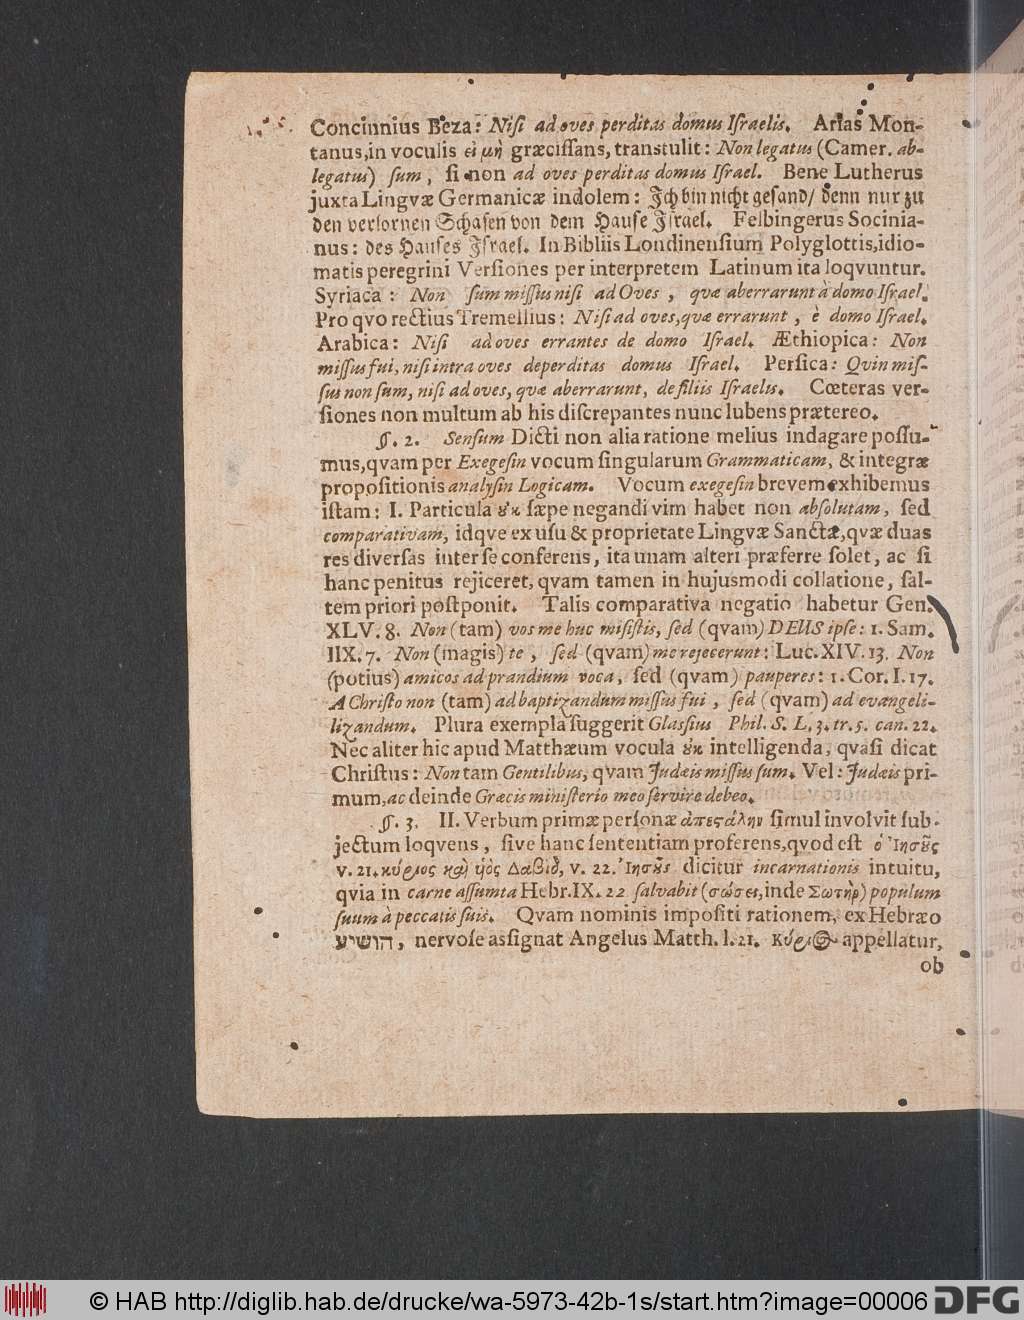 Concinnius Beza: Niſi ad oves perditas domus Iſraelis. Arias Mon-
tanus, in voculis εἰ μὴ græciſſans, transtulit: Non legatus (Camer. ab-
legatus) ſum, ſi non ad oves perditas domus Iſrael. Bene Lutherus
juxta Lingvæ Germanicæ indolem: Ich bin nicht geſand/ denn nur zu
den verlornen Schafen von dem Hauſe Iſrael. Felbingerus Socinia-
nus: des Hauſes Iſrael. In Bibliis Londinenſium Polyglottis, idio-
matis peregrini Verſiones per interpretem Latinum ita loqvuntur.
Syriaca: Non ſum miſſus niſi ad Oves, qvæ aberrarunt à domo Iſrael.
Pro qvo rectius Tremellius: Niſi ad oves, qvæ errarunt, è domo Iſrael.
Arabica: Niſi ad oves errantes de domo Iſrael. Æthiopica: Non
miſſus fui, niſi intra oves deperditas domus Iſrael. Perſica: Qvin miſ-
ſus non ſum, niſi ad oves, qvæ aberrarunt, de filiis Iſraelis. Cœteras ver-
ſiones non multum ab his diſcrepantes nunc lubens prætereo.
§. 2. Senſum Dicti non alia ratione melius indagare poſſu-
mus, qvam per Exegeſin vocum ſingularum Grammaticam, & integræ
propoſitionis analyſin Logicam. Vocum exegeſin brevem exhibemus
iſtam: I. Particula ȣκ ſæpe negandi vim habet non abſolutam, ſed
comparativam, idqve ex uſu & proprietate Lingvæ Sanctæ, qvæ duas
res diverſas inter ſe conferens, ita unam alteri præferre ſolet, ac ſi
hanc penitus rejiceret, qvam tamen in hujusmodi collatione, ſal-
tem priori poſtponit. Talis comparativa negatio habetur Gen.
XLV. 8. Non (tam) vos me huc miſiſtis, ſed (qvam) DEUS ipſe: 1. Sam.
IIX. 7. Non (magis) te, ſed (qvam) me rejecerunt: Luc. XIV. 13. Non
(potius) amicos ad prandium voca, ſed (qvam) pauperes: 1. Cor. I. 17.
A Chriſto non (tam) ad baptizandum miſſus fui, ſed (qvam) ad evangeli-
lizandum. Plura exempla ſuggerit Glaſſius Phil. S. L. 3. tr. 5. can. 22.
Nec aliter hic apud Matthæum vocula ȣκ intelligenda, qvaſi dicat
Chriſtus: Non tam Gentilibus, qvam Judæis miſſus ſum. Vel: Judæis pri-
mum, ac deinde Græcis miniſterio meo ſervire debeo.
§. 3. II. Verbum primæ perſonæ ἀπεϛάλην ſimul involvit ſub-
jectum loqvens, ſive hanc ſententiam proferens, qvod eſt ὁ Ἰησȣ̃ς
v. 21. κύριος καὶ ὑιὸς Δαβιδ, v. 22. Ἰησȣ̃ς dicitur incarnationis intuitu,
qvia in carne aſſumta Hebr. IX. 22 ſalvabit (σώσει, inde Σωτὴρ) populum
ſuum à peccatis ſuis. Qvam nominis impoſiti rationem, ex Hebræo
הושיע, nervoſe aſſignat Angelus Matth. I. 21. Κύριος appellatur,
ob
© HAB http://diglib.hab.de/drucke/wa-5973-42b-1s/start.htm?image=00006 DFG